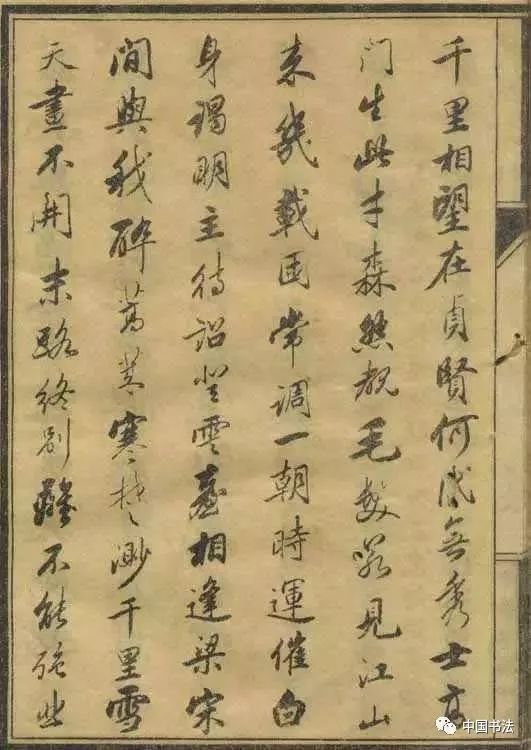 千里相望在貞賢何代無秀士高
门生此才森然覩毛髮若見江山
来幾載困常调一朝時運催白
身謁明主待詔登雲臺相逢梁宋
间與我醉蒿莱寒楚渺千里雪
天晝不開末路終别離不能强
中国书法